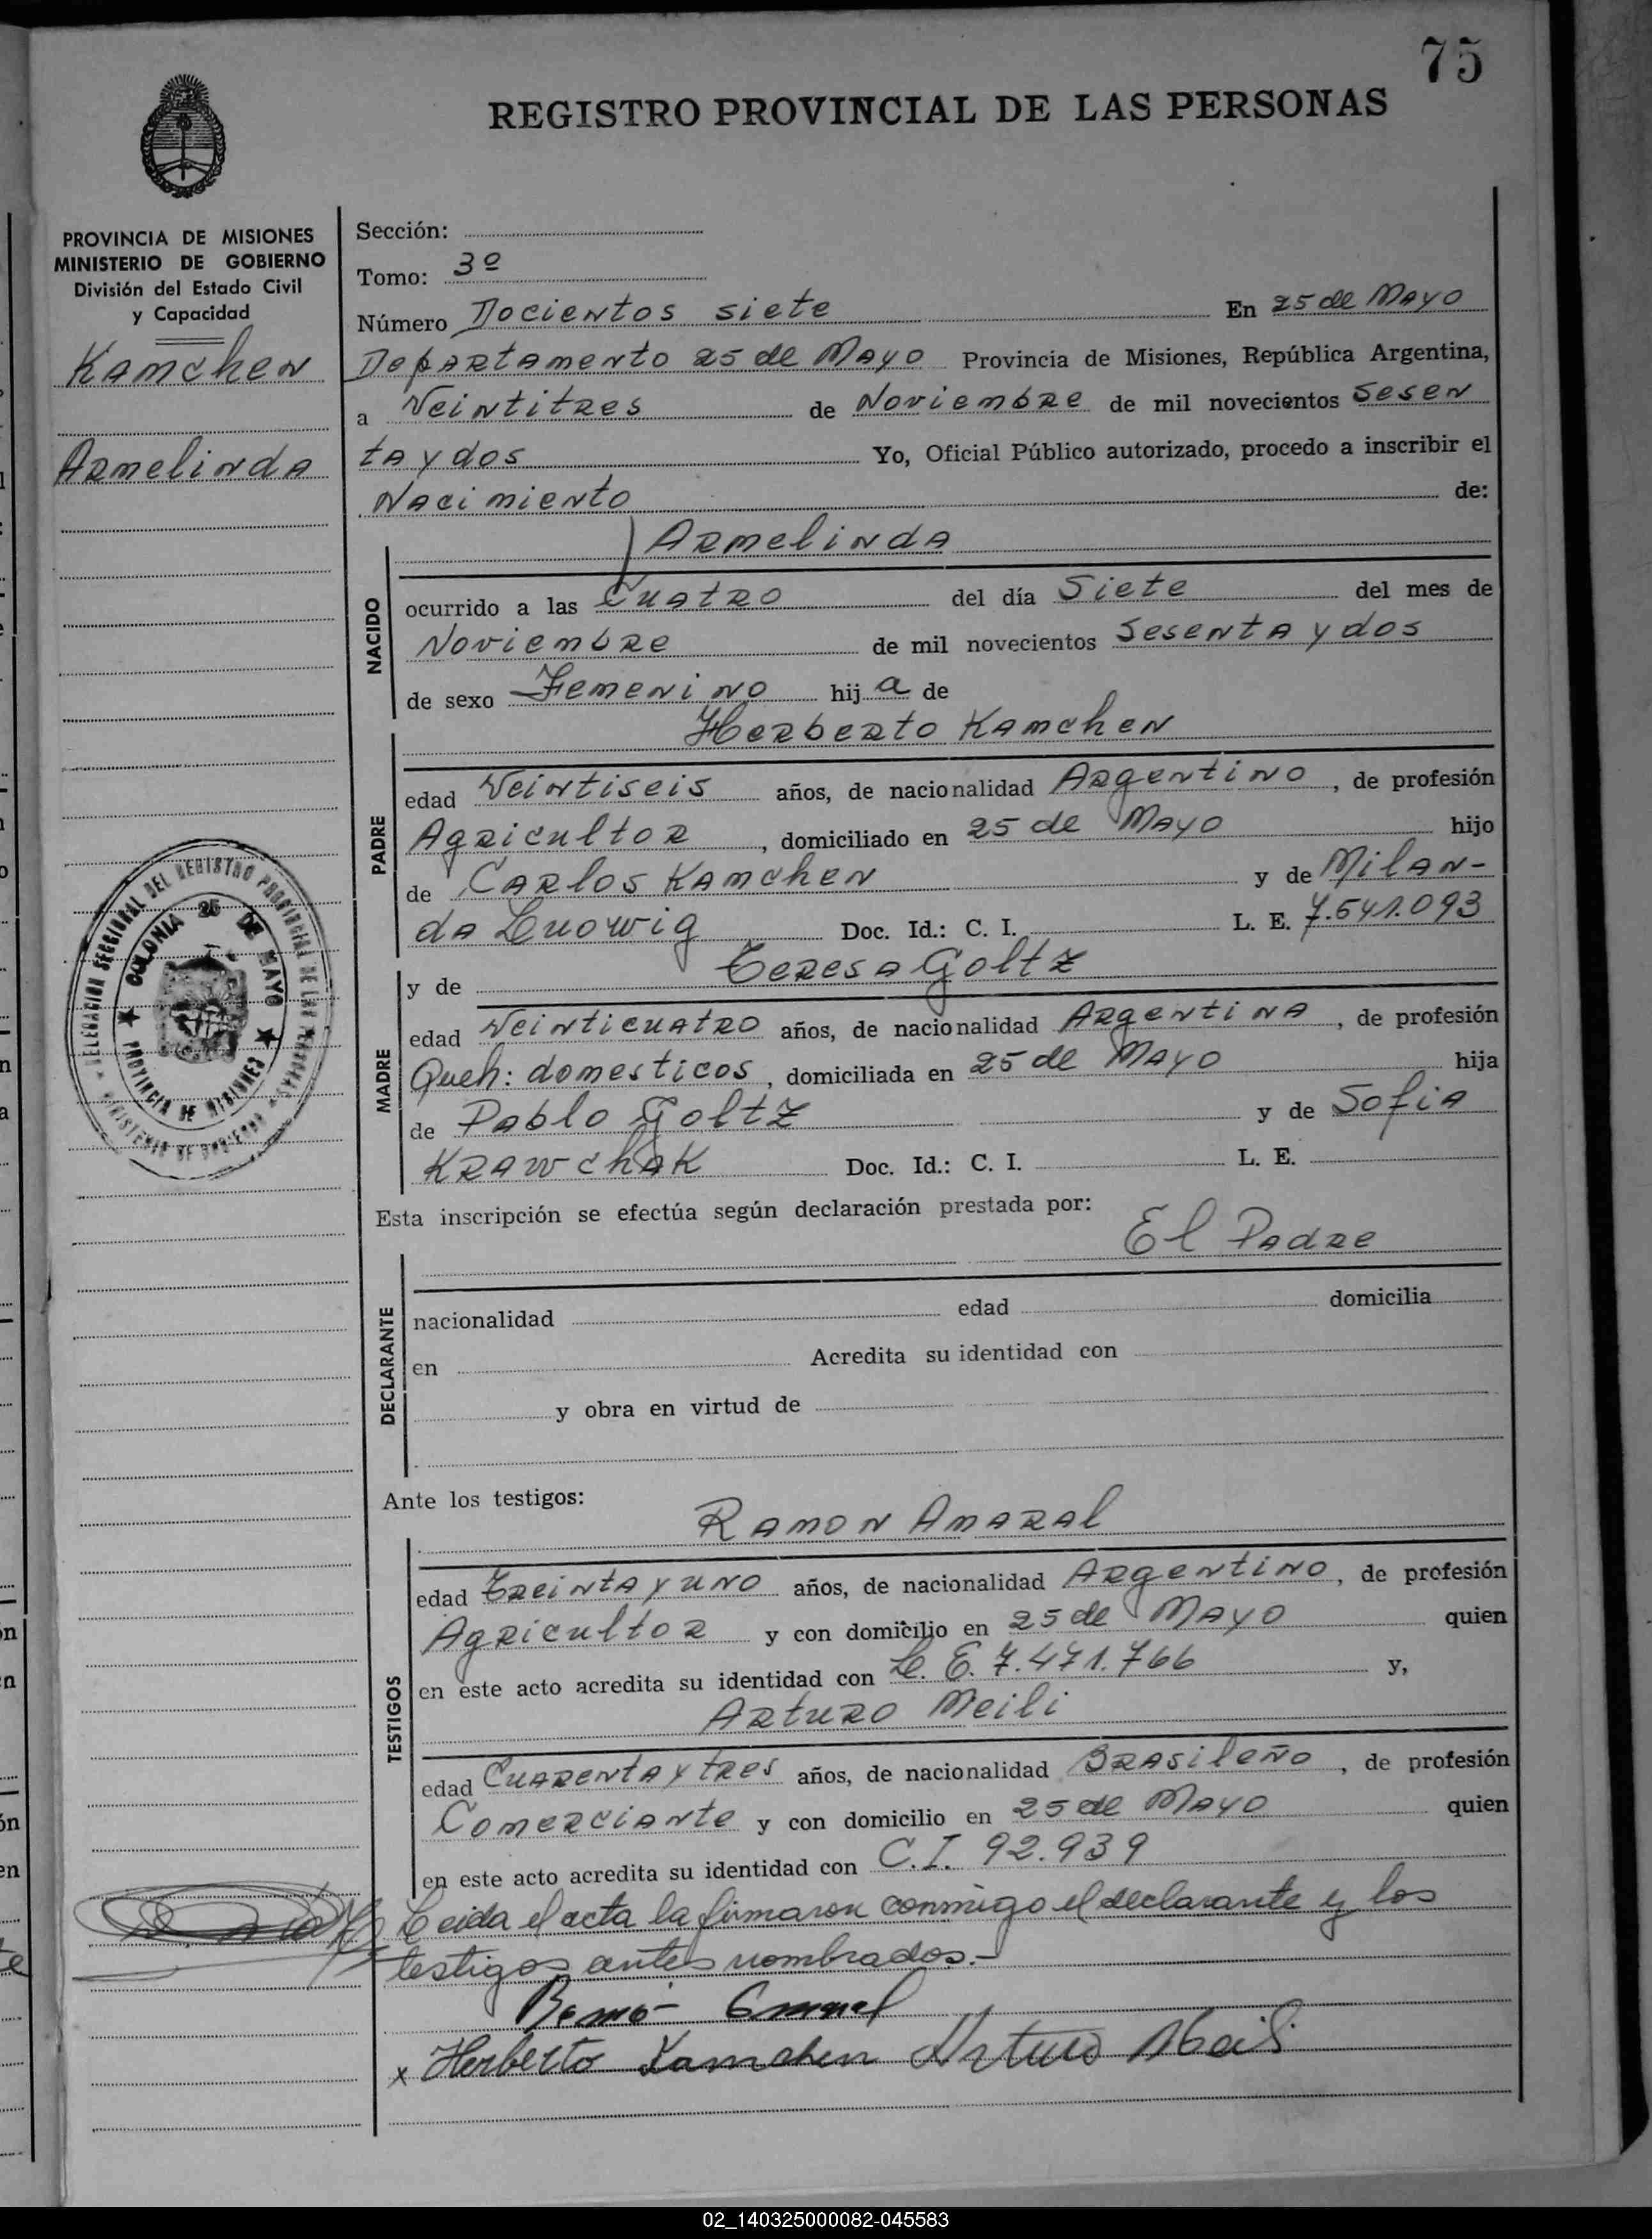 75
REGISTRO PROVINCIAL DE LAS PERSONAS
PROVINCIA DE MISIONES
MINISTERIO DE GOBIERNO
División del Estado Civil
y Capacidad
Kamchen
Armelinda
DELEGACION SECCIONAL DEL REGISTRO PROVINCIAL DE LAS PERSONAS
COLONIA 25 DE MAYO
PROVINCIA DE MISIONES
MINISTERIO DE GOBIERNO
Sección:
Tomo: 3º
Número Docientos siete En 25 de Mayo
Departamento 25 de Mayo Provincia de Misiones, República Argentina,
a Veintitres de Noviembre de mil novecientos Sesen
ta y dos Yo, Oficial Público autorizado, procedo a inscribir el
Nacimiento de:
Armelinda
NACIDO
ocurrido a las Cuatro del día Siete del mes de
Noviembre de mil novecientos Sesenta y dos
de sexo Femenino hij a de
Herberto Kamchen
PADRE
edad Veintiseis años, de nacionalidad Argentino, de profesión
Agricultor, domiciliado en 25 de Mayo hijo
de Carlos Kamchen y de Milan-
da Ludwig Doc. Id.: C. I. L. E. 7.541.093
y de Teresa Goltz
MADRE
edad Veinticuatro años, de nacionalidad Argentina, de profesión
Queh: domesticos, domiciliada en 25 de Mayo hija
de Pablo Goltz y de Sofia
Krawchak Doc. Id.: C. I. L. E.
Esta inscripción se efectúa según declaración prestada por:
El Padre
DECLARANTE
nacionalidad edad domicilia
en Acredita su identidad con
y obra en virtud de
Ante los testigos:
Ramon Amaral
TESTIGOS
edad Treinta y uno años, de nacionalidad Argentino, de profesión
Agricultor y con domicilio en 25 de Mayo quien
en este acto acredita su identidad con L. E. 7.471.766 y,
Arturo Meili
edad Cuarenta y tres años, de nacionalidad Brasileño, de profesión
Comerciante y con domicilio en 25 de Mayo quien
en este acto acredita su identidad con C.I. 92.939
Leida el acta la firmaron conmigo el declarante y los
testigos antes nombrados.-
x Herberto Kamchen Arturo Meili
02_140325000082-045583